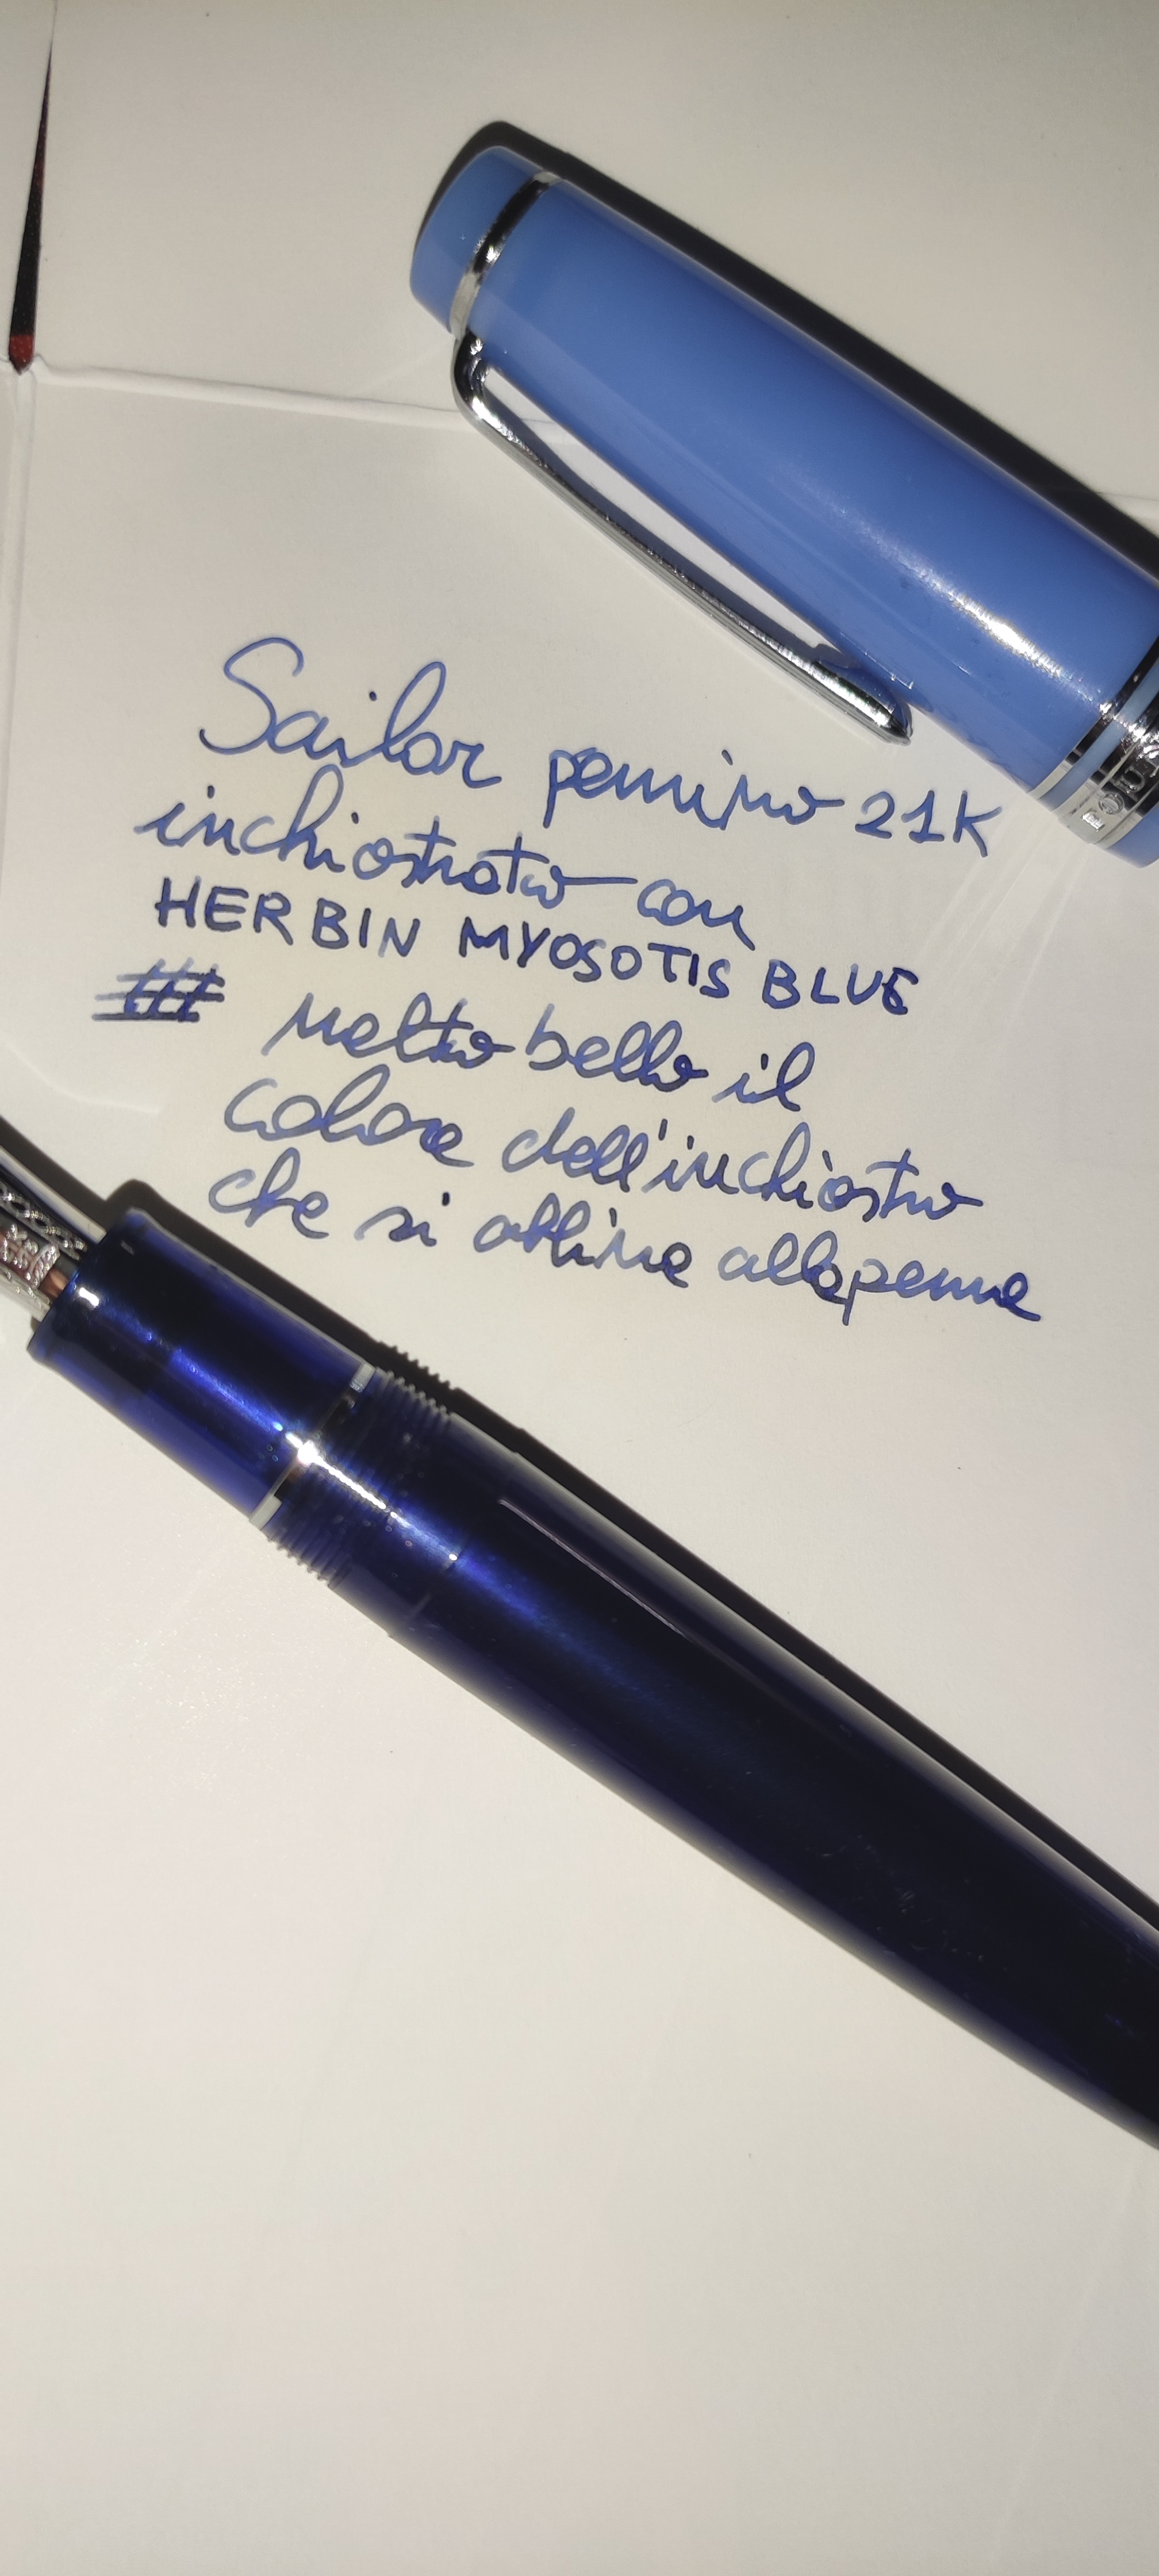 Sailor pennino 21K
inchiostrato con
HERBIN MYOSOTIS BLUE
molto bello il
colore dell'inchiostro
che si abbina alla penna